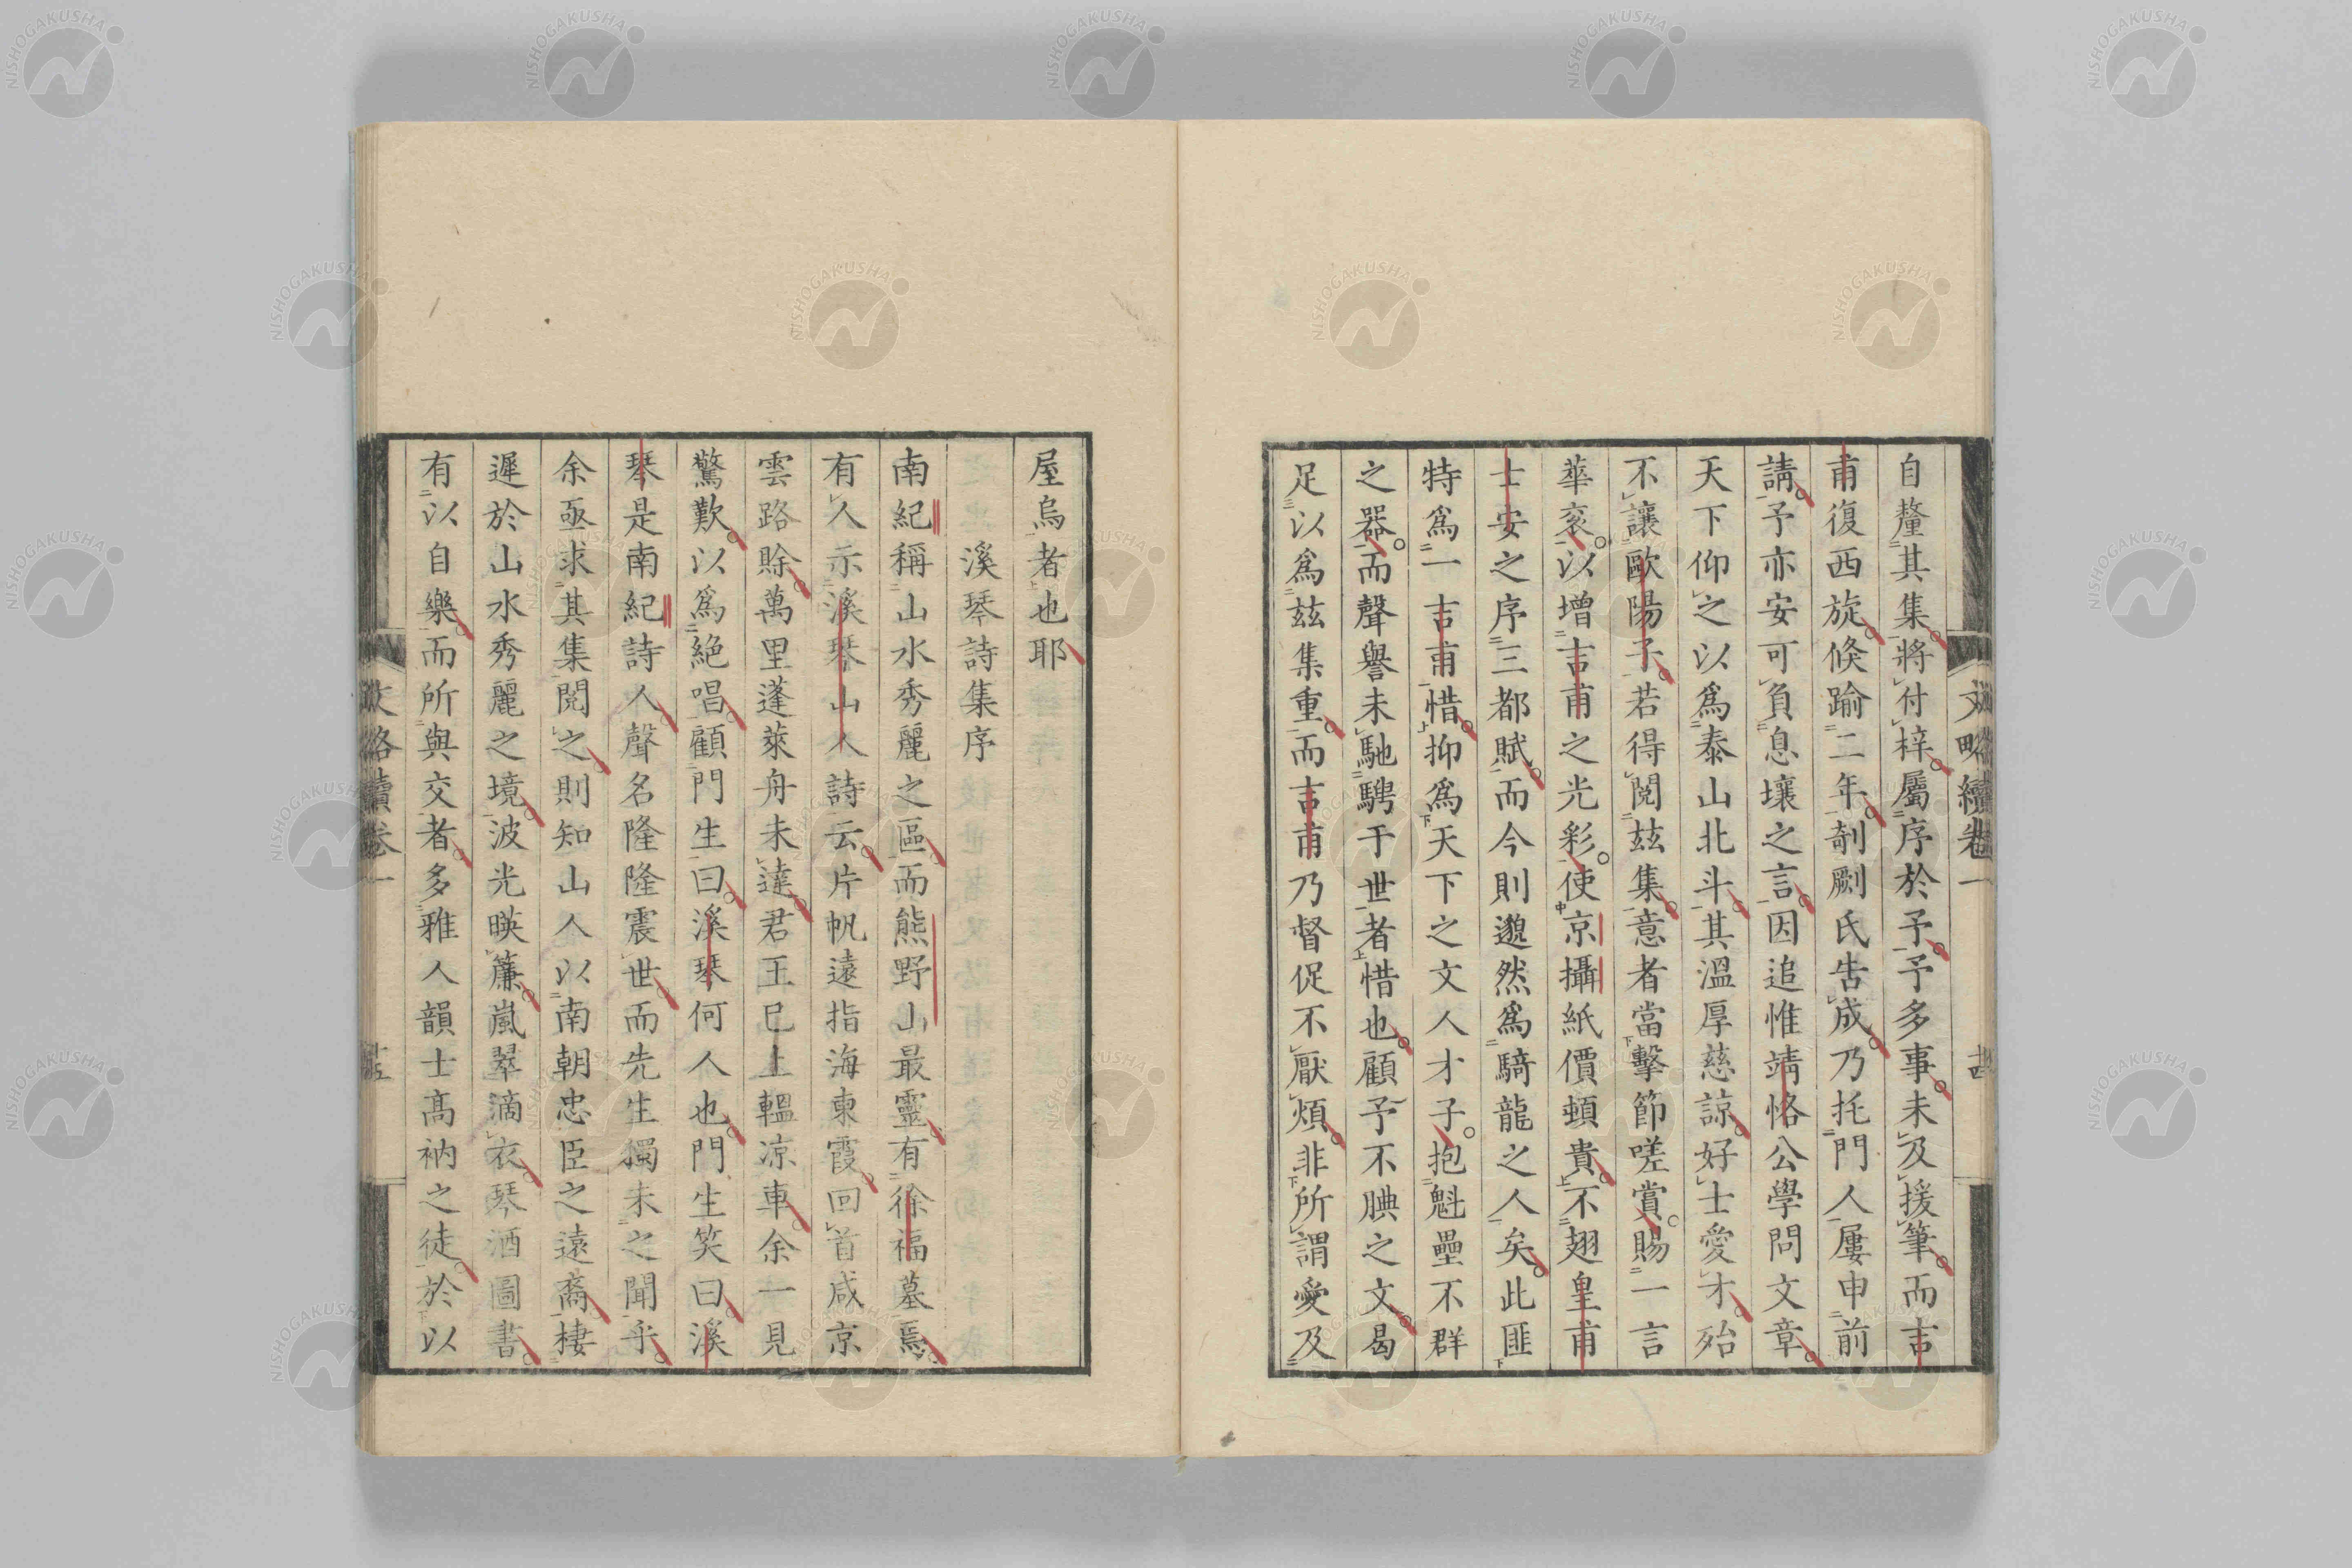 文略續卷一
自釐其集將付梓屬序於予予多事未及援筆而吉
甫復西旋倐踰二年剞劂氏告成乃托門人屢申前
請予亦安可負息壤之言因追惟靖恪公學問文章
天下仰之以為泰山北斗其溫厚慈諒好士愛才殆
不讓歐陽子若得閱玆集意者當擊節嗟賞賜一言
華衮以增吉甫之光彩使京攝紙價頓貴不翅皇甫
士安之序三都賦而今則邈然爲騎龍之人矣此匪
特爲一吉甫惜抑爲天下之文人才子抱魁壘不群
之器而聲譽未馳騁于世者惜也顧予不腆之文曷
足以爲玆集重而吉甫乃督促不厭煩非所謂愛及
屋烏者也耶
溪琴詩集序
南紀稱山水秀麗之區而熊野山最靈有徐福墓焉
有人示溪琴山人詩云片帆遠指海東霞回首咸京
雲路賖萬里蓬萊舟未達君王已上轀涼車余一見
驚歎以爲絕唱顧門生曰溪琴何人也門生笑曰溪
琴是南紀詩人聲名隆隆震世而先生獨未之聞乎
余亟求其集閱之則知山人以南朝忠臣之遠裔棲
遲於山水秀麗之境波光暎簾嵐翠滴衣琴酒圖書
有以自樂而所與交者多雅人韻士高衲之徒於以
文略續卷一